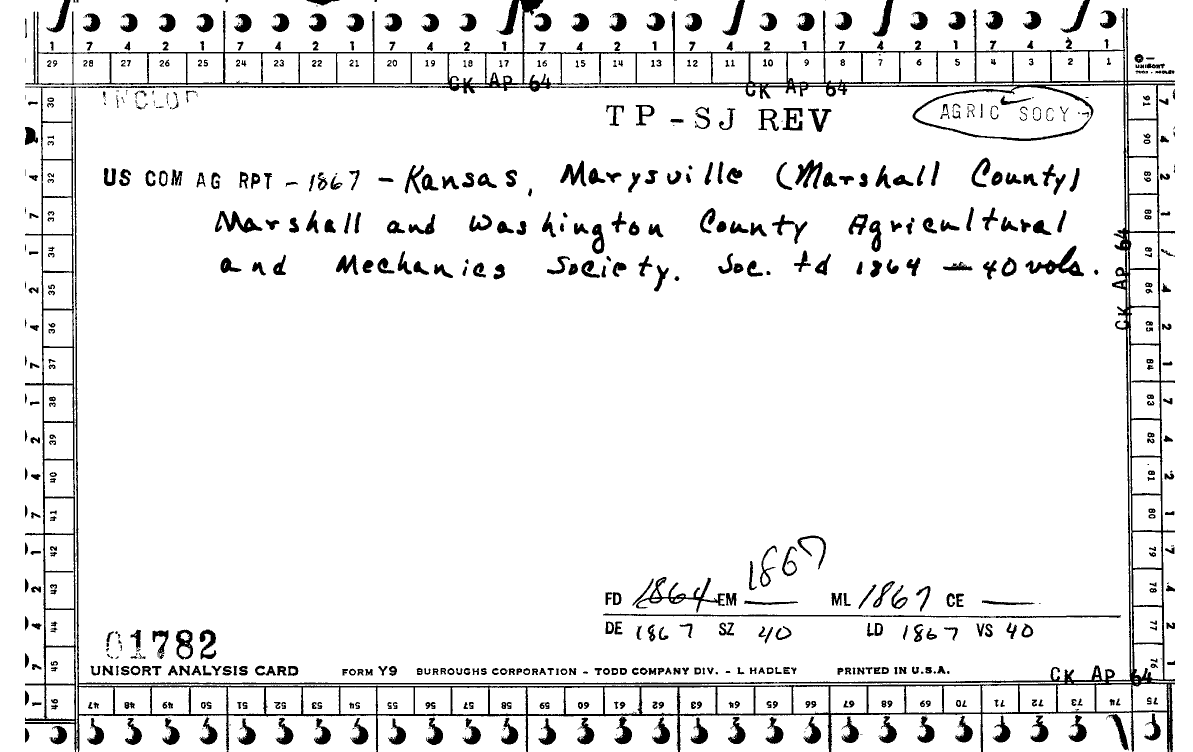 1 7 4 2 1 7 4 2 1 7 4 2 1 7 4 2 1 7 4 2 1 7 4 2 1 7 4 2 1
29 28 27 26 25 24 23 22 21 20 19 18 17 16 15 14 13 12 11 10 9 8 7 6 5 4 3 2 1
UNISORT
CK AP 64 CK AP 64
TP-SJ REV AGRIC SOCY
US COM AG RPT - 1867 - Kansas, Marysville (Marshall County)
Marshall and Washington County Agricultural
and Mechanics Society. Soc. td 1864 — 40 vols.
CK AP 64
1867
FD 1864 EM ML 1867 CE
DE 1867 SZ 40 LD 1867 VS 40
01782
UNISORT ANALYSIS CARD FORM Y9 BURROUGHS CORPORATION - TODD COMPANY DIV. - L HADLEY PRINTED IN U.S.A.
CK AP 64
30 31 32 33 34 35 36 37 38 39 40 41 42 43 44 45 46
91 90 89 88 87 86 85 84 83 82 81 80 79 78 77 76 75
47 48 49 50 51 52 53 54 55 56 57 58 59 60 61 62 63 64 65 66 67 68 69 70 71 72 73 74